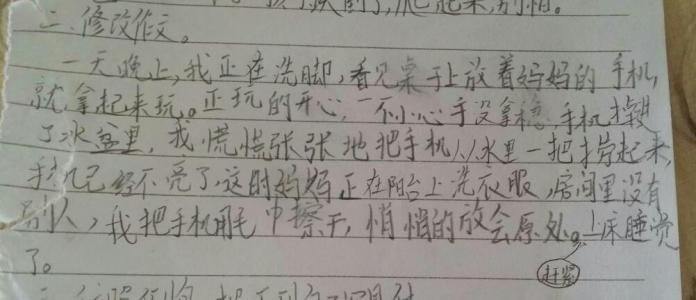 了,爬起来,别怕。
二、修改作文。
一天晚上,我正在洗脚,看见桌子上放着妈妈的手机,
就拿起来玩。正玩的开心,一不小心手没拿稳手机掉进
了水盆里,我慌慌张张地把手机从水里一把捞起来,
手机已经不亮了,这时妈妈正在阳台上洗衣服,房间里没有
别人,我把手机用毛巾擦干,悄悄的放会原处。上床睡觉
赶紧
了。